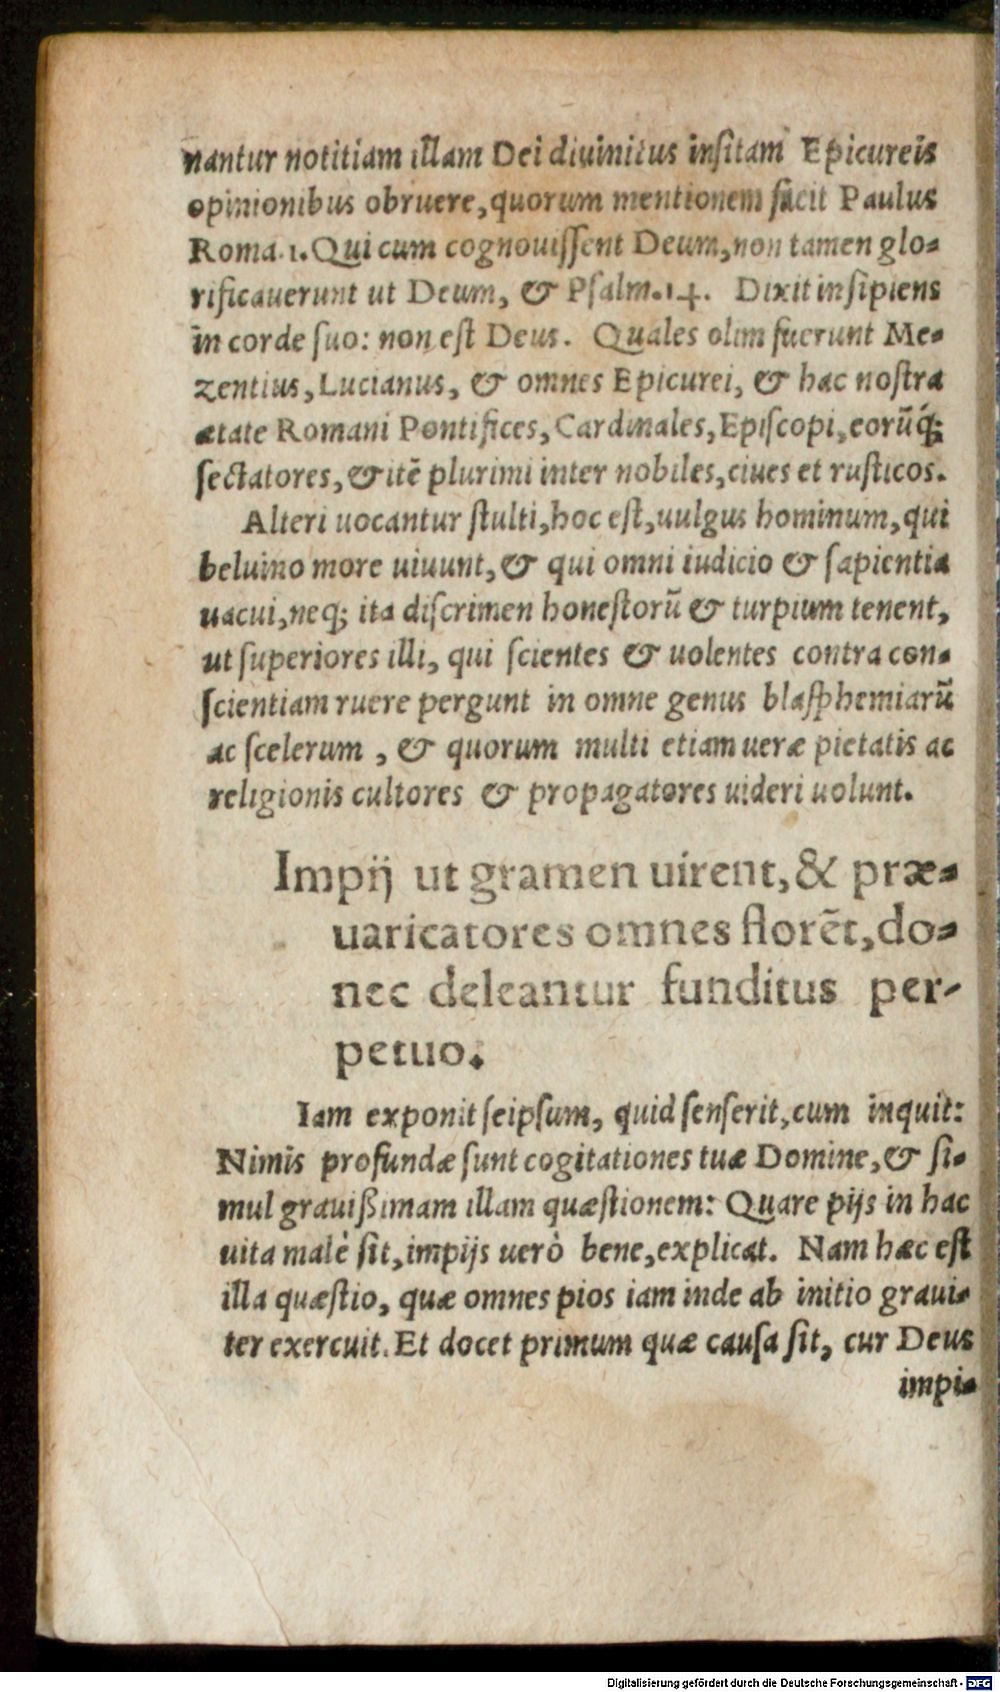 nantur notitiam illam Dei diuinitus inſitam Epicureis
opinionibus obruere, quorum mentionem facit Paulus
Roma. 1. Qui cum cognouiſſent Deum, non tamen glo⸗
rificauerunt ut Deum, & Pſalm. 14. Dixit inſipiens
in corde ſuo: non eſt Deus. Quales olim fuerunt Me⸗
zentius, Lucianus, & omnes Epicurei, & hac noſtra
ætate Romani Pontifices, Cardinales, Epiſcopi, eorūq́;
ſectatores, & itē plurimi inter nobiles, ciues et ruſticos.
Alteri uocantur ſtulti, hoc eſt, uulgus hominum, qui
beluino more uiuunt, & qui omni iudicio & ſapientia
uacui, neq; ita diſcrimen honeſtorū & turpium tenent,
ut ſuperiores illi, qui ſcientes & uolentes contra con⸗
ſcientiam ruere pergunt in omne genus blaſphemiarū
ac ſcelerum, & quorum multi etiam ueræ pietatis ac
religionis cultores & propagatores uideri uolunt.
Impij ut gramen uirent, & præ⸗
uaricatores omnes florēt, do⸗
nec deleantur funditus per-
petuo.
Iam exponit ſeipſum, quid ſenſerit, cum inquit:
Nimis profundæ ſunt cogitationes tuæ Domine, & ſi⸗
mul grauißimam illam quæſtionem: Quare pijs in hac
uita malè ſit, impijs uerò bene, explicat. Nam hæc eſt
illa quæſtio, quæ omnes pios iam inde ab initio graui⸗
ter exercuit. Et docet primum quæ cauſa ſit, cur Deus
impi⸗
Digitalisierung gefördert durch die Deutsche Forschungsgemeinschaft - DFG